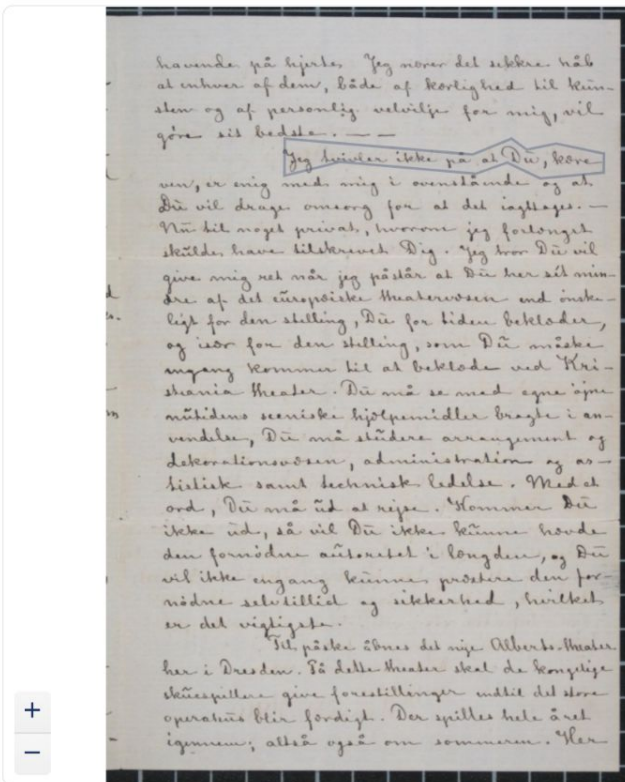 havende på hjerte. Jeg nærer det sikkre håb
at enhver af dem, både af kærlighed til kun-
sten og af personlig velvilje for mig, vil
göre sit bedste. — —
Jeg tvivler ikke på at Du, kære
ven, er enig med mig i ovenstående og at
Du vil drage omsorg for at det iagttages. —
Nu til noget privat, hvorom jeg forlængst
skulde have tilskrevet Dig. Jeg tror Du vil
give mig ret når jeg påstår at Du har sét min-
dre af det europæiske theatervæsen end önske-
ligt for den stilling, Du for tiden beklæder,
og især for den stilling, som Du måske
engang kommer til at beklæde ved Kri-
stiania theater. Du må se med egne öjne
nutidens sceniske hjælpemidler bragte i an-
vendelse, Du må studere arrangement og
dekorationsvæsen, administration og ar-
tistisk samt technisk ledelse. Med et
ord, Du må ud at rejse. Kommer Du
ikke ud, så vil Du ikke kunne hævde
den fornödne autoritet i længden, og Du
vil ikke engang kunne præstere den for-
nödne selvtillid og sikkerhed, hvilket
er det vigtigste.
Til påske åbnes det nye Alberts-theater
her i Dresden. På dette theater skal de kongelige
skuespillere give forestillinger indtil det store
operahus blir færdigt. Der spilles hele året
igennem; altså også om sommeren. Her
+
−